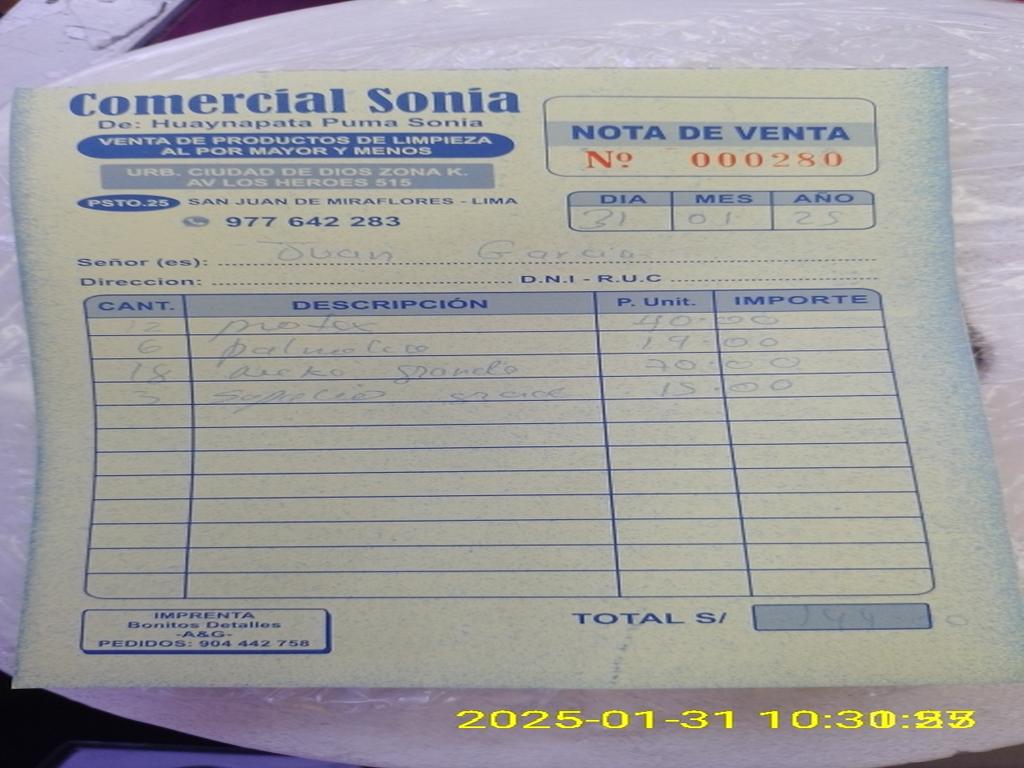 Comercial Sonia
De: Huaynapata Puma Sonia
VENTA DE PRODUCTOS DE LIMPIEZA
AL POR MAYOR Y MENOS
URB. CIUDAD DE DIOS ZONA K.
AV LOS HEROES 515
PSTO.25 SAN JUAN DE MIRAFLORES - LIMA
977 642 283
NOTA DE VENTA
Nº 000280
DIA MES AÑO
31 01 25
Señor (es): Juan Garcia
Direccion: D.N.I - R.U.C
CANT. DESCRIPCIÓN P. Unit. IMPORTE
12 protex 40.00
6 palmolive 19.00
18 grande 70.00
3 sapolio 15.00
IMPRENTA
Bonitos Detalles
-A&G-
PEDIDOS: 904 442 758
TOTAL S/ 144
2025-01-31 10:30